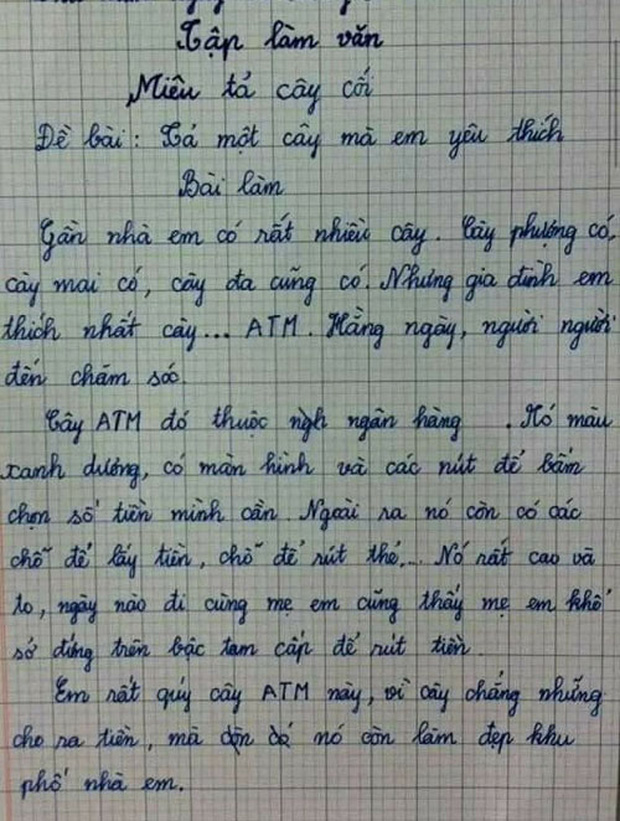 Tập làm văn
Miêu tả cây cối
Đề bài: Tả một cây mà em yêu thích
Bài làm
Gần nhà em có rất nhiều cây. Cây phượng có,
cây mai có, cây đa cũng có. Nhưng gia đình em
thích nhất cây... ATM. Hằng ngày, người người
đến chăm sóc.
Cây ATM đó thuộc ngh ngân hàng . Nó màu
xanh dương, có màn hình và các nút để bấm
chọn số tiền mình cần. Ngoài ra nó còn có các
chỗ để lấy tiền, chỗ để rút thẻ... Nó rất cao và
to, ngày nào đi cùng mẹ em cũng thấy mẹ em khổ
sở đứng trên bậc tam cấp để rút tiền.
Em rất quý cây ATM này, vì cây chẳng những
cho ra tiền, mà nó còn làm đẹp khu
phố nhà em.